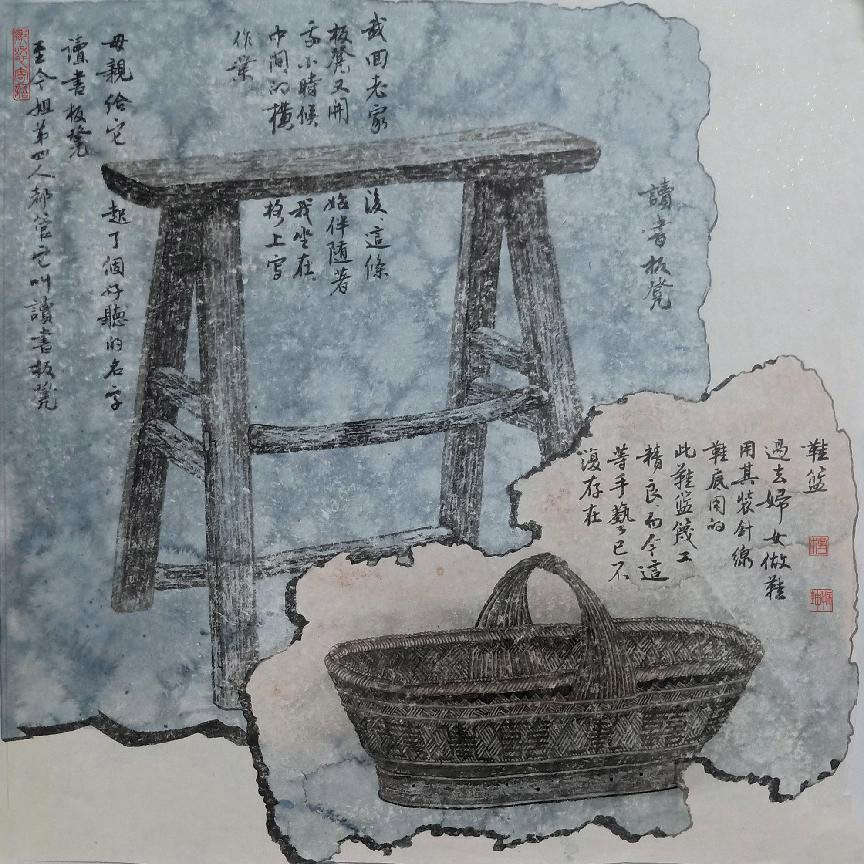 讀書板凳
我回老家後這條
板凳又開始伴隨著
我小時候我坐在
中間的橫板上寫
作業
母親給它起了個好聽的名字
讀書板凳
至今姐弟四人都管它叫讀書板凳
鞋籃
過去婦女做鞋
用其裝針線
鞋底用的
此鞋籃篾工
精良而今這
等手藝已不
復存在